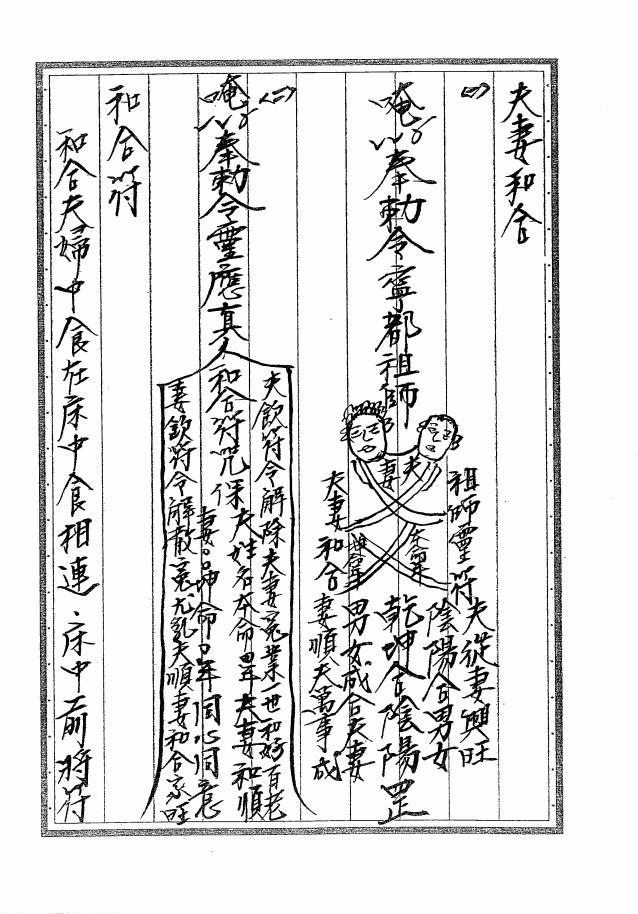 夫妻和合
(一)
唵奉勅令寧都祖師
妻 夫
乾坤合陰陽罡
祖師靈符夫從妻興旺
陰陽合男女
本命
夫妻和合妻順夫萬事成
男女成合夫妻
(二)
唵奉勅令靈應真人和合符咒保
夫飲符令解除夫妻冤業一世和好百老
夫姓名本命年夫妻和順
妻坤命年同心同意
妻飲符令解散冤尤乱夫順妻和合家旺
和合符
和合夫婦中食在床中食相連、床中前將符